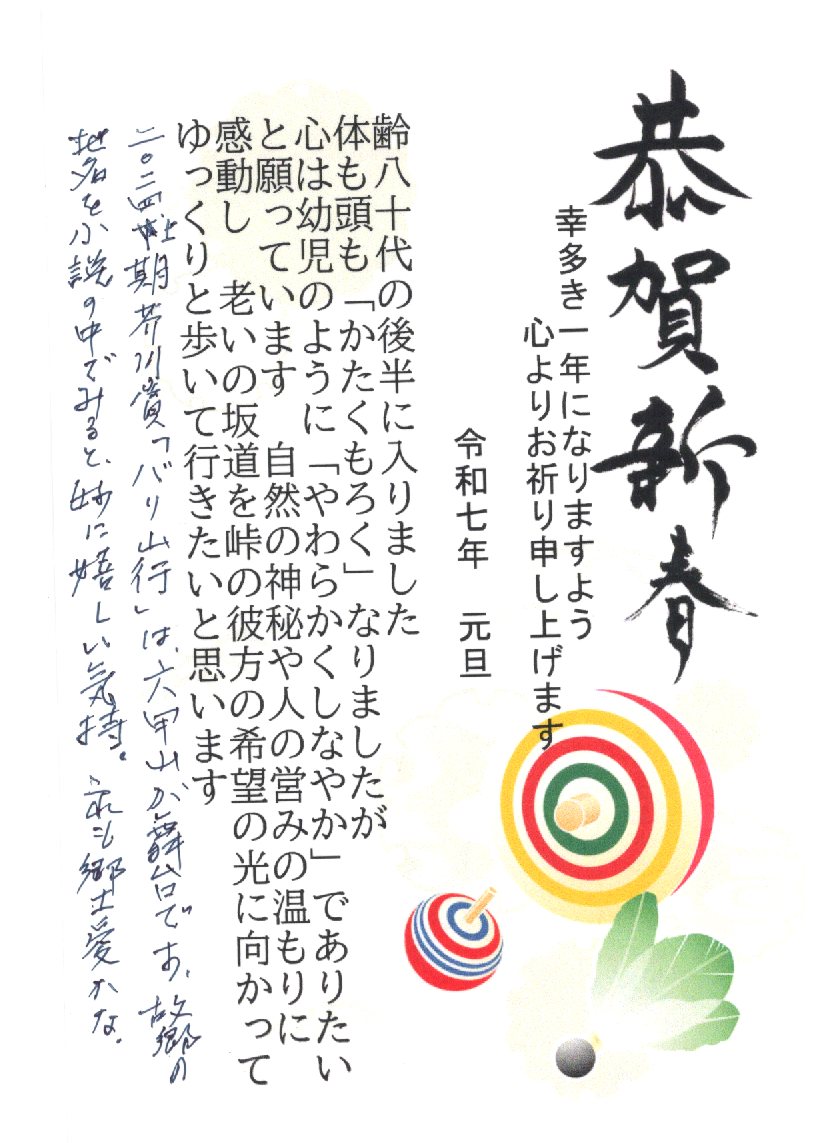 恭賀新春
幸多き一年になりますよう
心よりお祈り申し上げます
令和七年 元旦
齢八十代の後半に入りました
体も頭も「かたくもろく」なりましたが
心は幼児のように「やわらかくしなやか」でありたい
と願っています 自然の神秘や人の営みの温もりに
感動し 老いの坂道を峠の彼方の希望の光に向かって
ゆっくりと歩いて行きたいと思います
二〇二四 期芥川賞「バリ山行」は、六甲山が舞台です、故郷の
地名を小説の中でみると、妙に嬉しい気持。これも郷土愛かな。